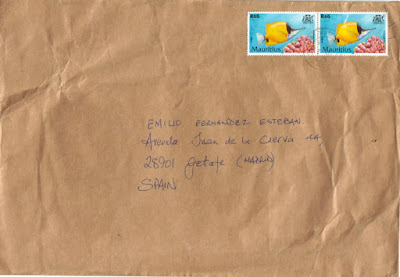 Mauritius
Mauritius
EMILIO FERNANDEZ ESTEBAN
Avenida Juan de la Cierva
28901 Getafe (MADRID)
SPAIN